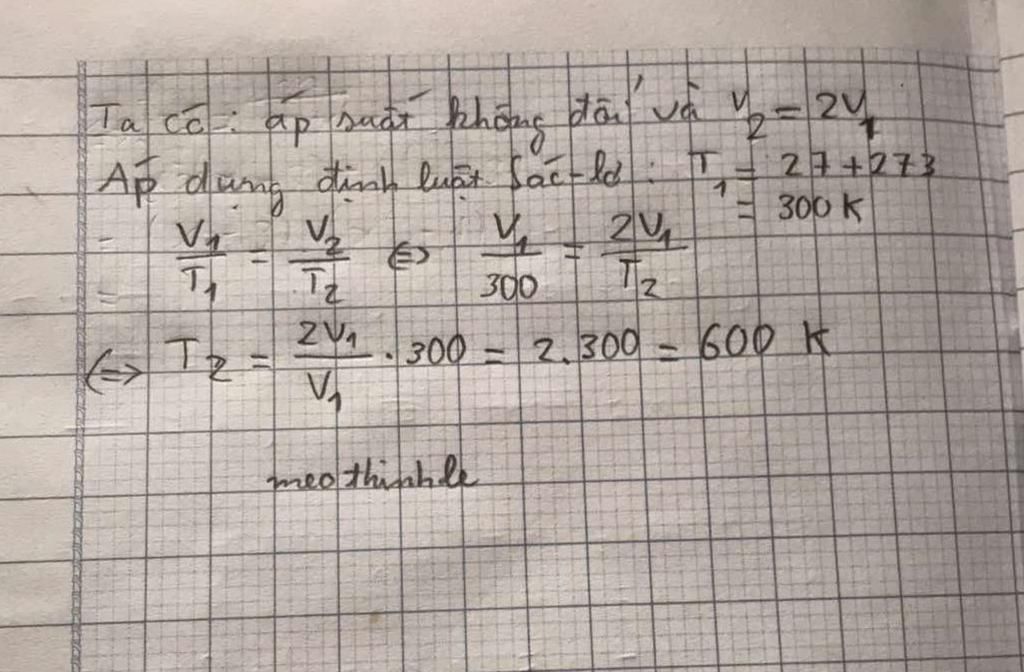 Ta có: áp suất không đổi và V₂ = 2V₁
Áp dụng định luật Sác-lơ: T₁ = 27 + 273
= 300 K
V₁/T₁ = V₂/T₂ ⇔ V₁/300 = 2V₁/T₂
⇔ T₂ = 2V₁/V₁ . 300 = 2.300 = 600 K
meothinhle